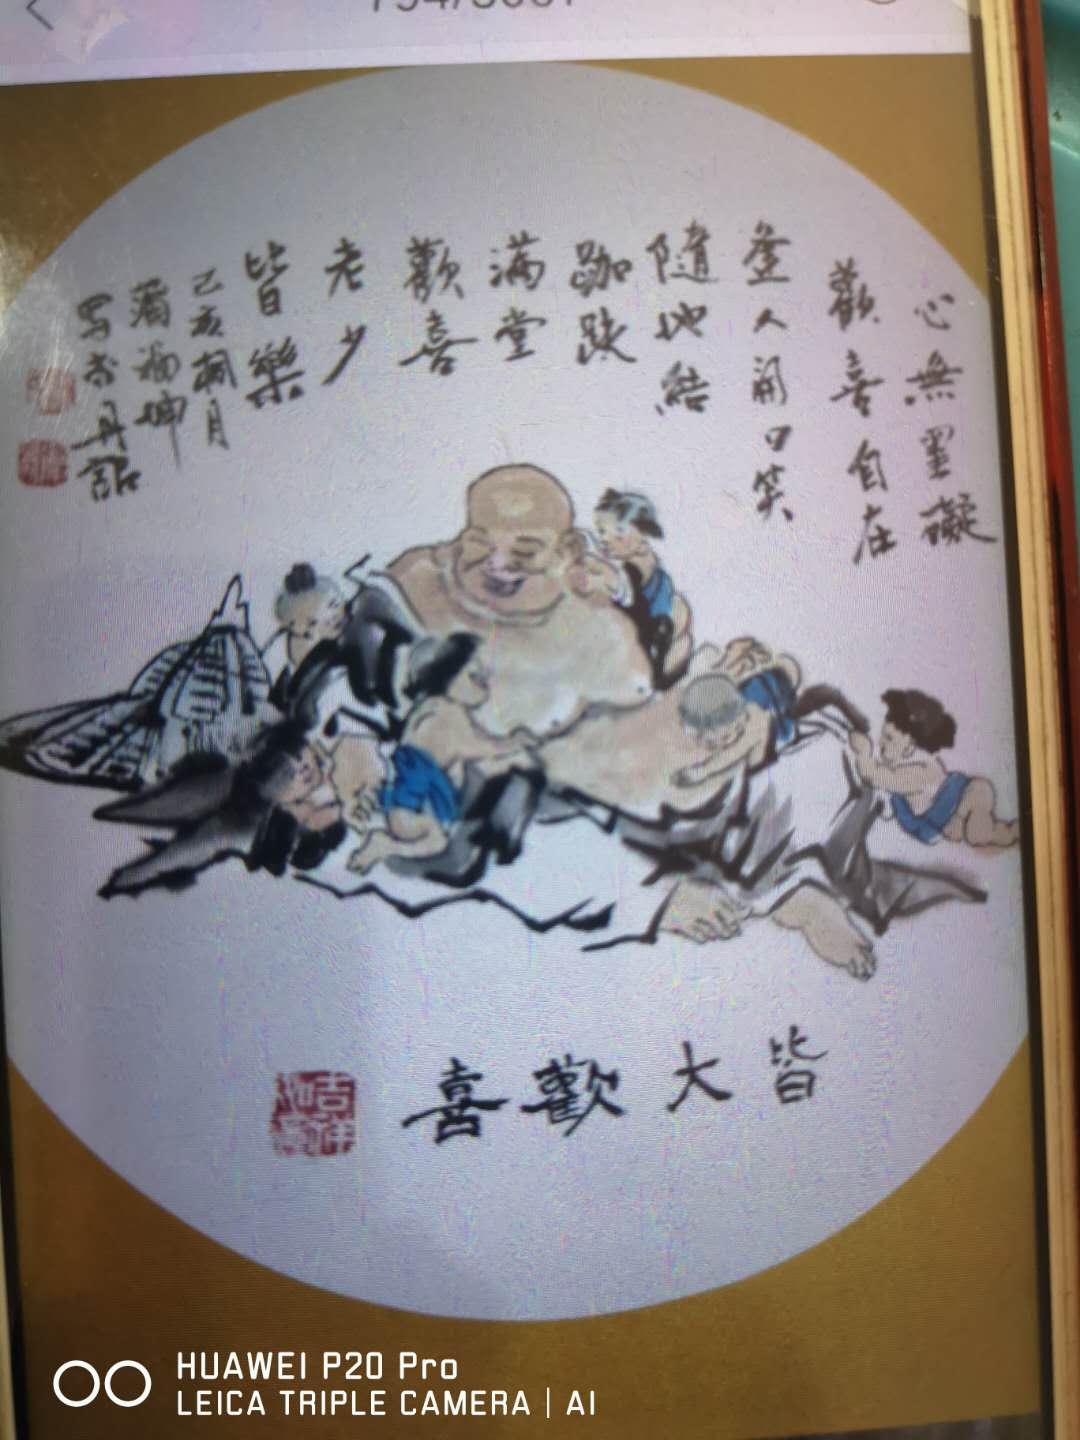 心無罣礙
歡喜自在
逢人開口笑
隨地結
跏趺
满堂
歡喜
老少
皆樂
己亥桐月
福坤
写於丹詔
皆大歡喜
吉祥如意
HUAWEI P20 Pro
LEICA TRIPLE CAMERA | AI